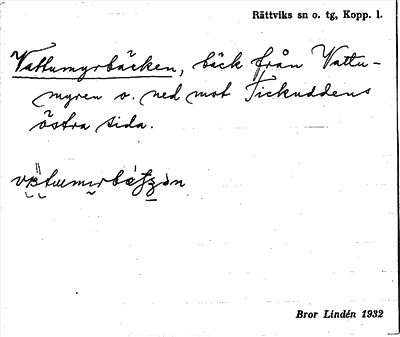 Rättviks sn o. tg, Kopp. l.
Vattumyrbäcken, bäck från Vattu-
myren o. ned mot Tickuddens
östra sida.
Bror Lindén 1932